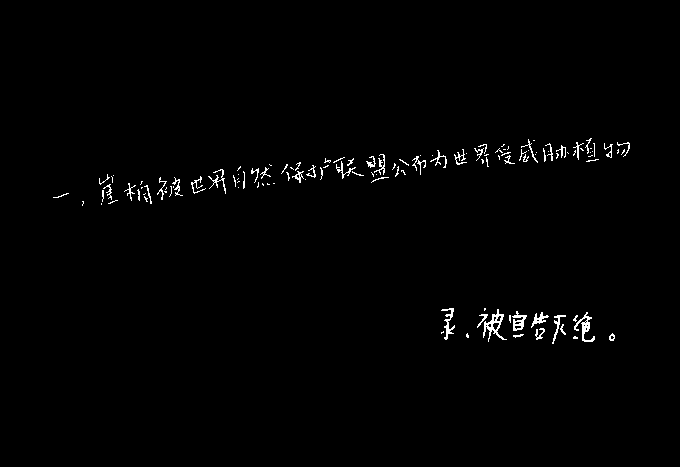 一,崖柏被世界自然保护联盟公布为世界受威胁植物
录,被宣告灭绝。